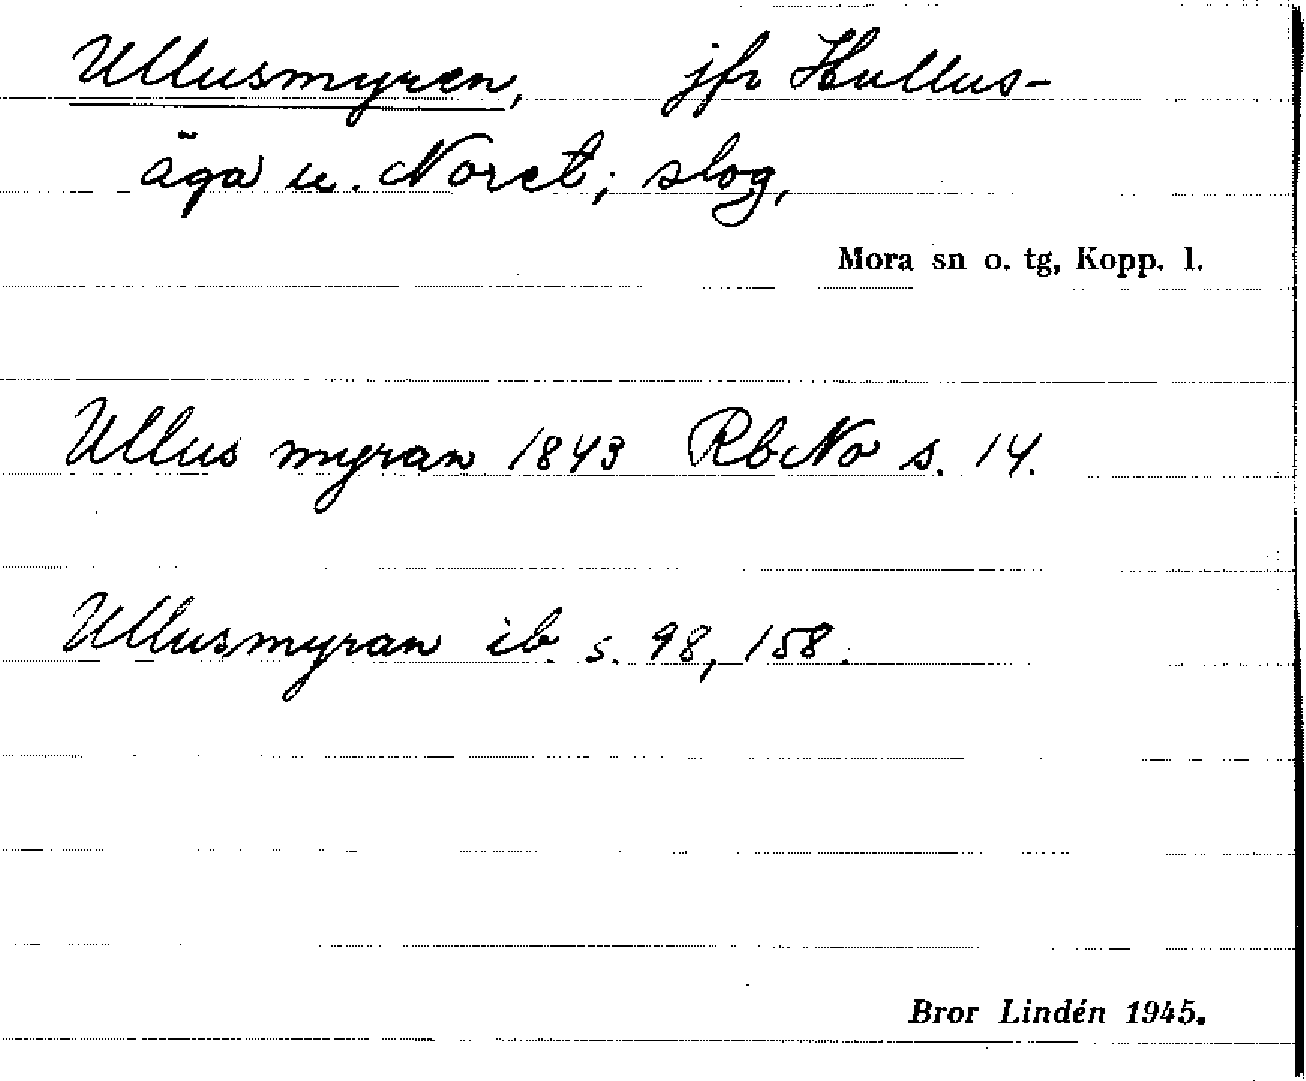 Ullusmyren, jfr Hullus-
äga u. Noret; slog,
Mora sn o. tg, Kopp. l.
Ullus myran 1843 RbNo s. 14.
Ullusmyran ib. s. 98, 158.
Bror Lindén 1945.